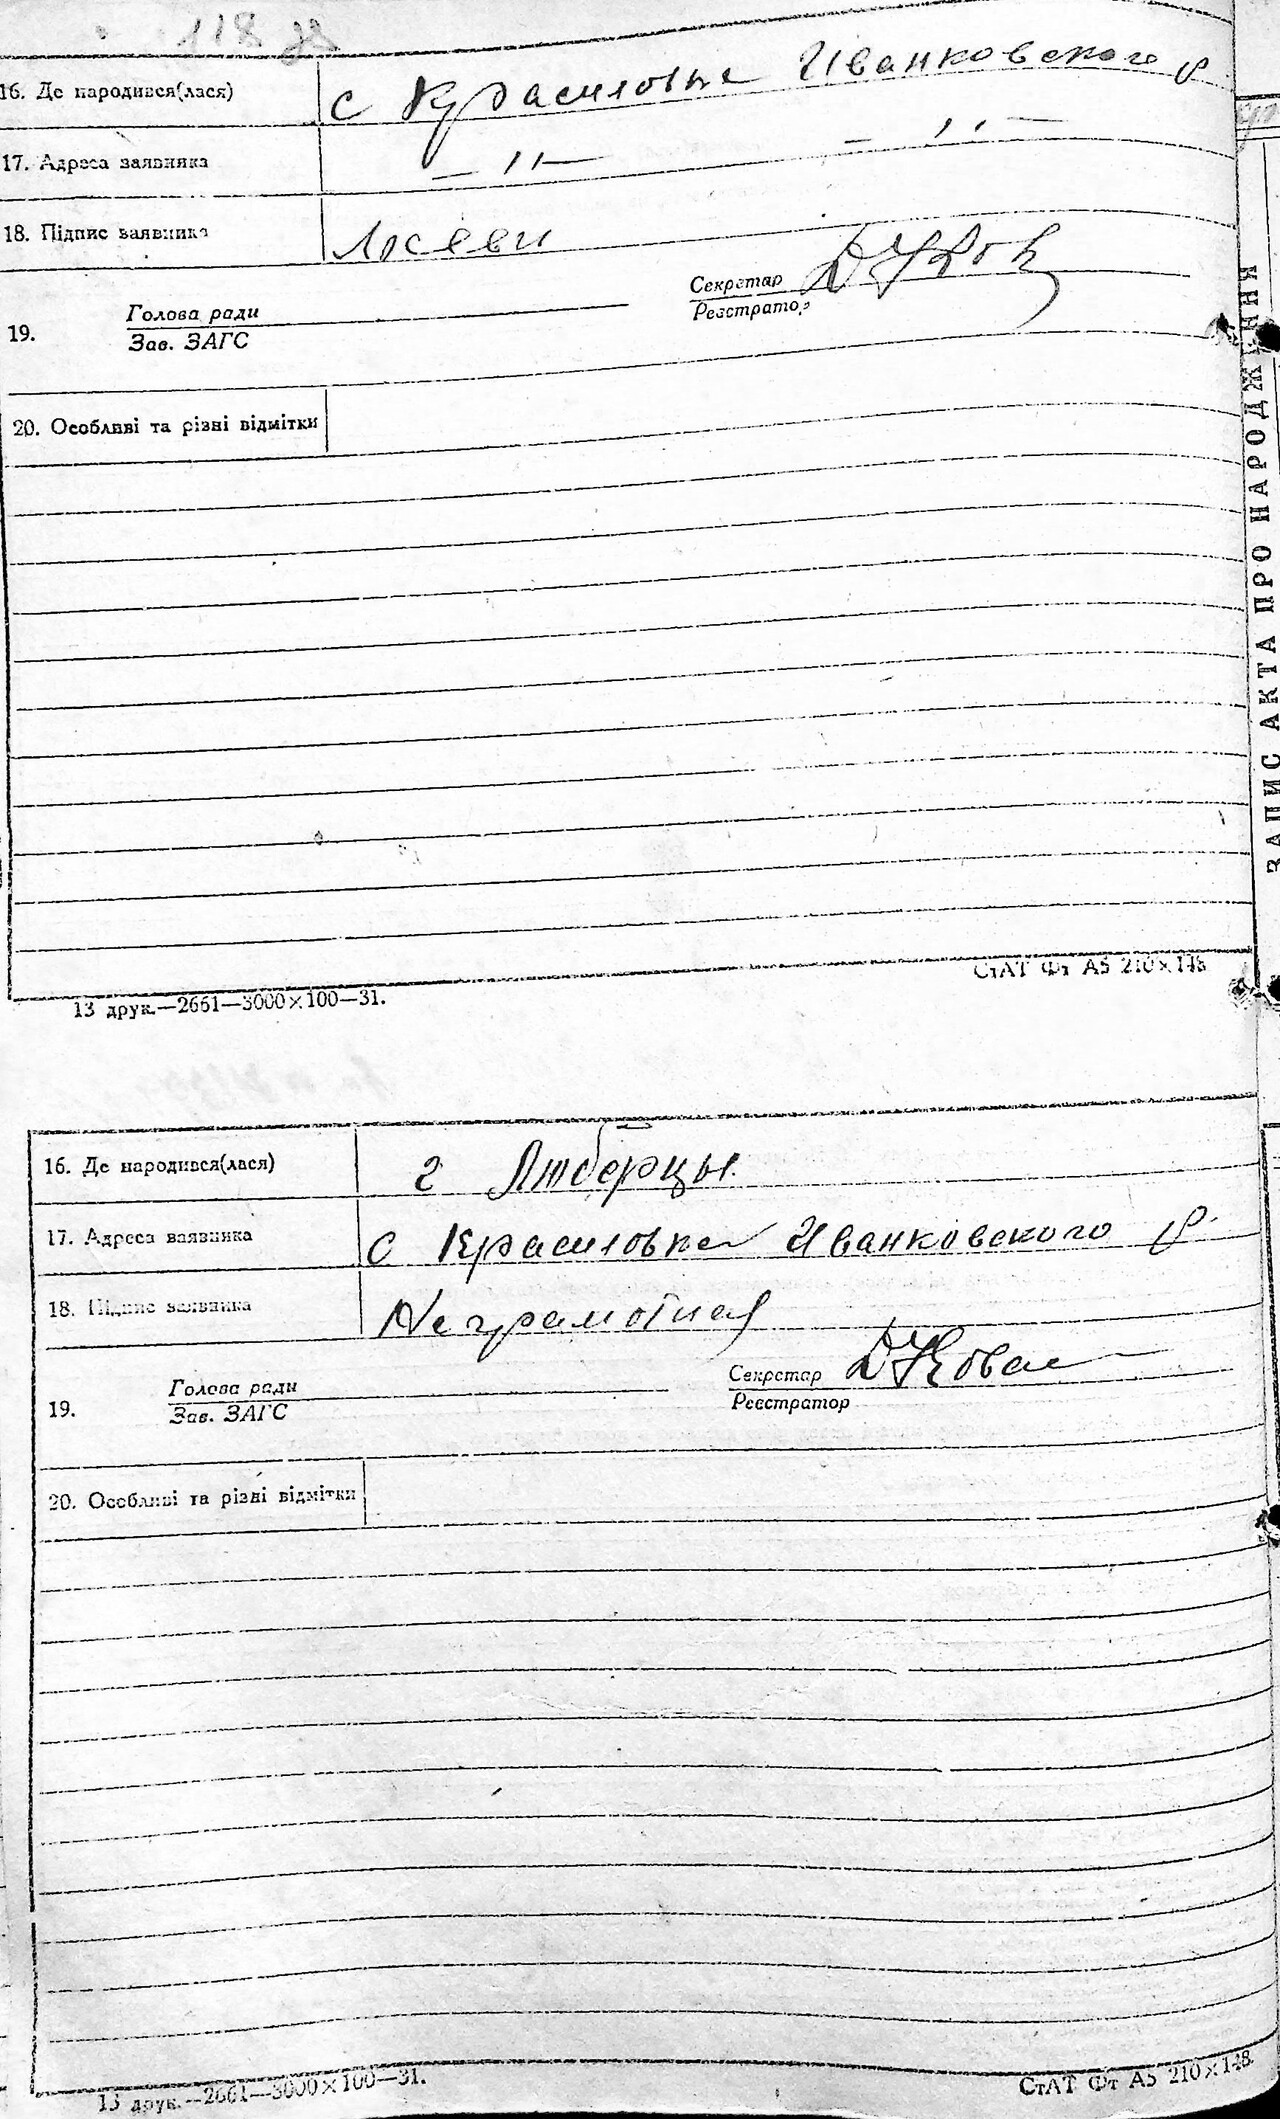 16. Де народився(лася) с Красиловке Иванковского р
17. Адреса заявника — '' — — '' —
18. Підпис заявника
Секретар
Реєстратор
Голова ради
Зав. ЗАГС
19.
20. Особливі та різні відмітки
13 друк.—2661—3000×100—31.
СтАТ Фт А5 210×148
ЗАПИС АКТА ПРО НАРОДЖЕННЯ
16. Де народився(лася) г Люберцы.
17. Адреса заявника с Красиловка Иванковского р.
18. Підпис заявника Неграмотная
Секретар ДКовал
Реєстратор
Голова ради
Зав. ЗАГС
19.
20. Особливі та різні відмітки
13 друк.—2661—3000×100—31.
СтАТ Фт А5 210×148